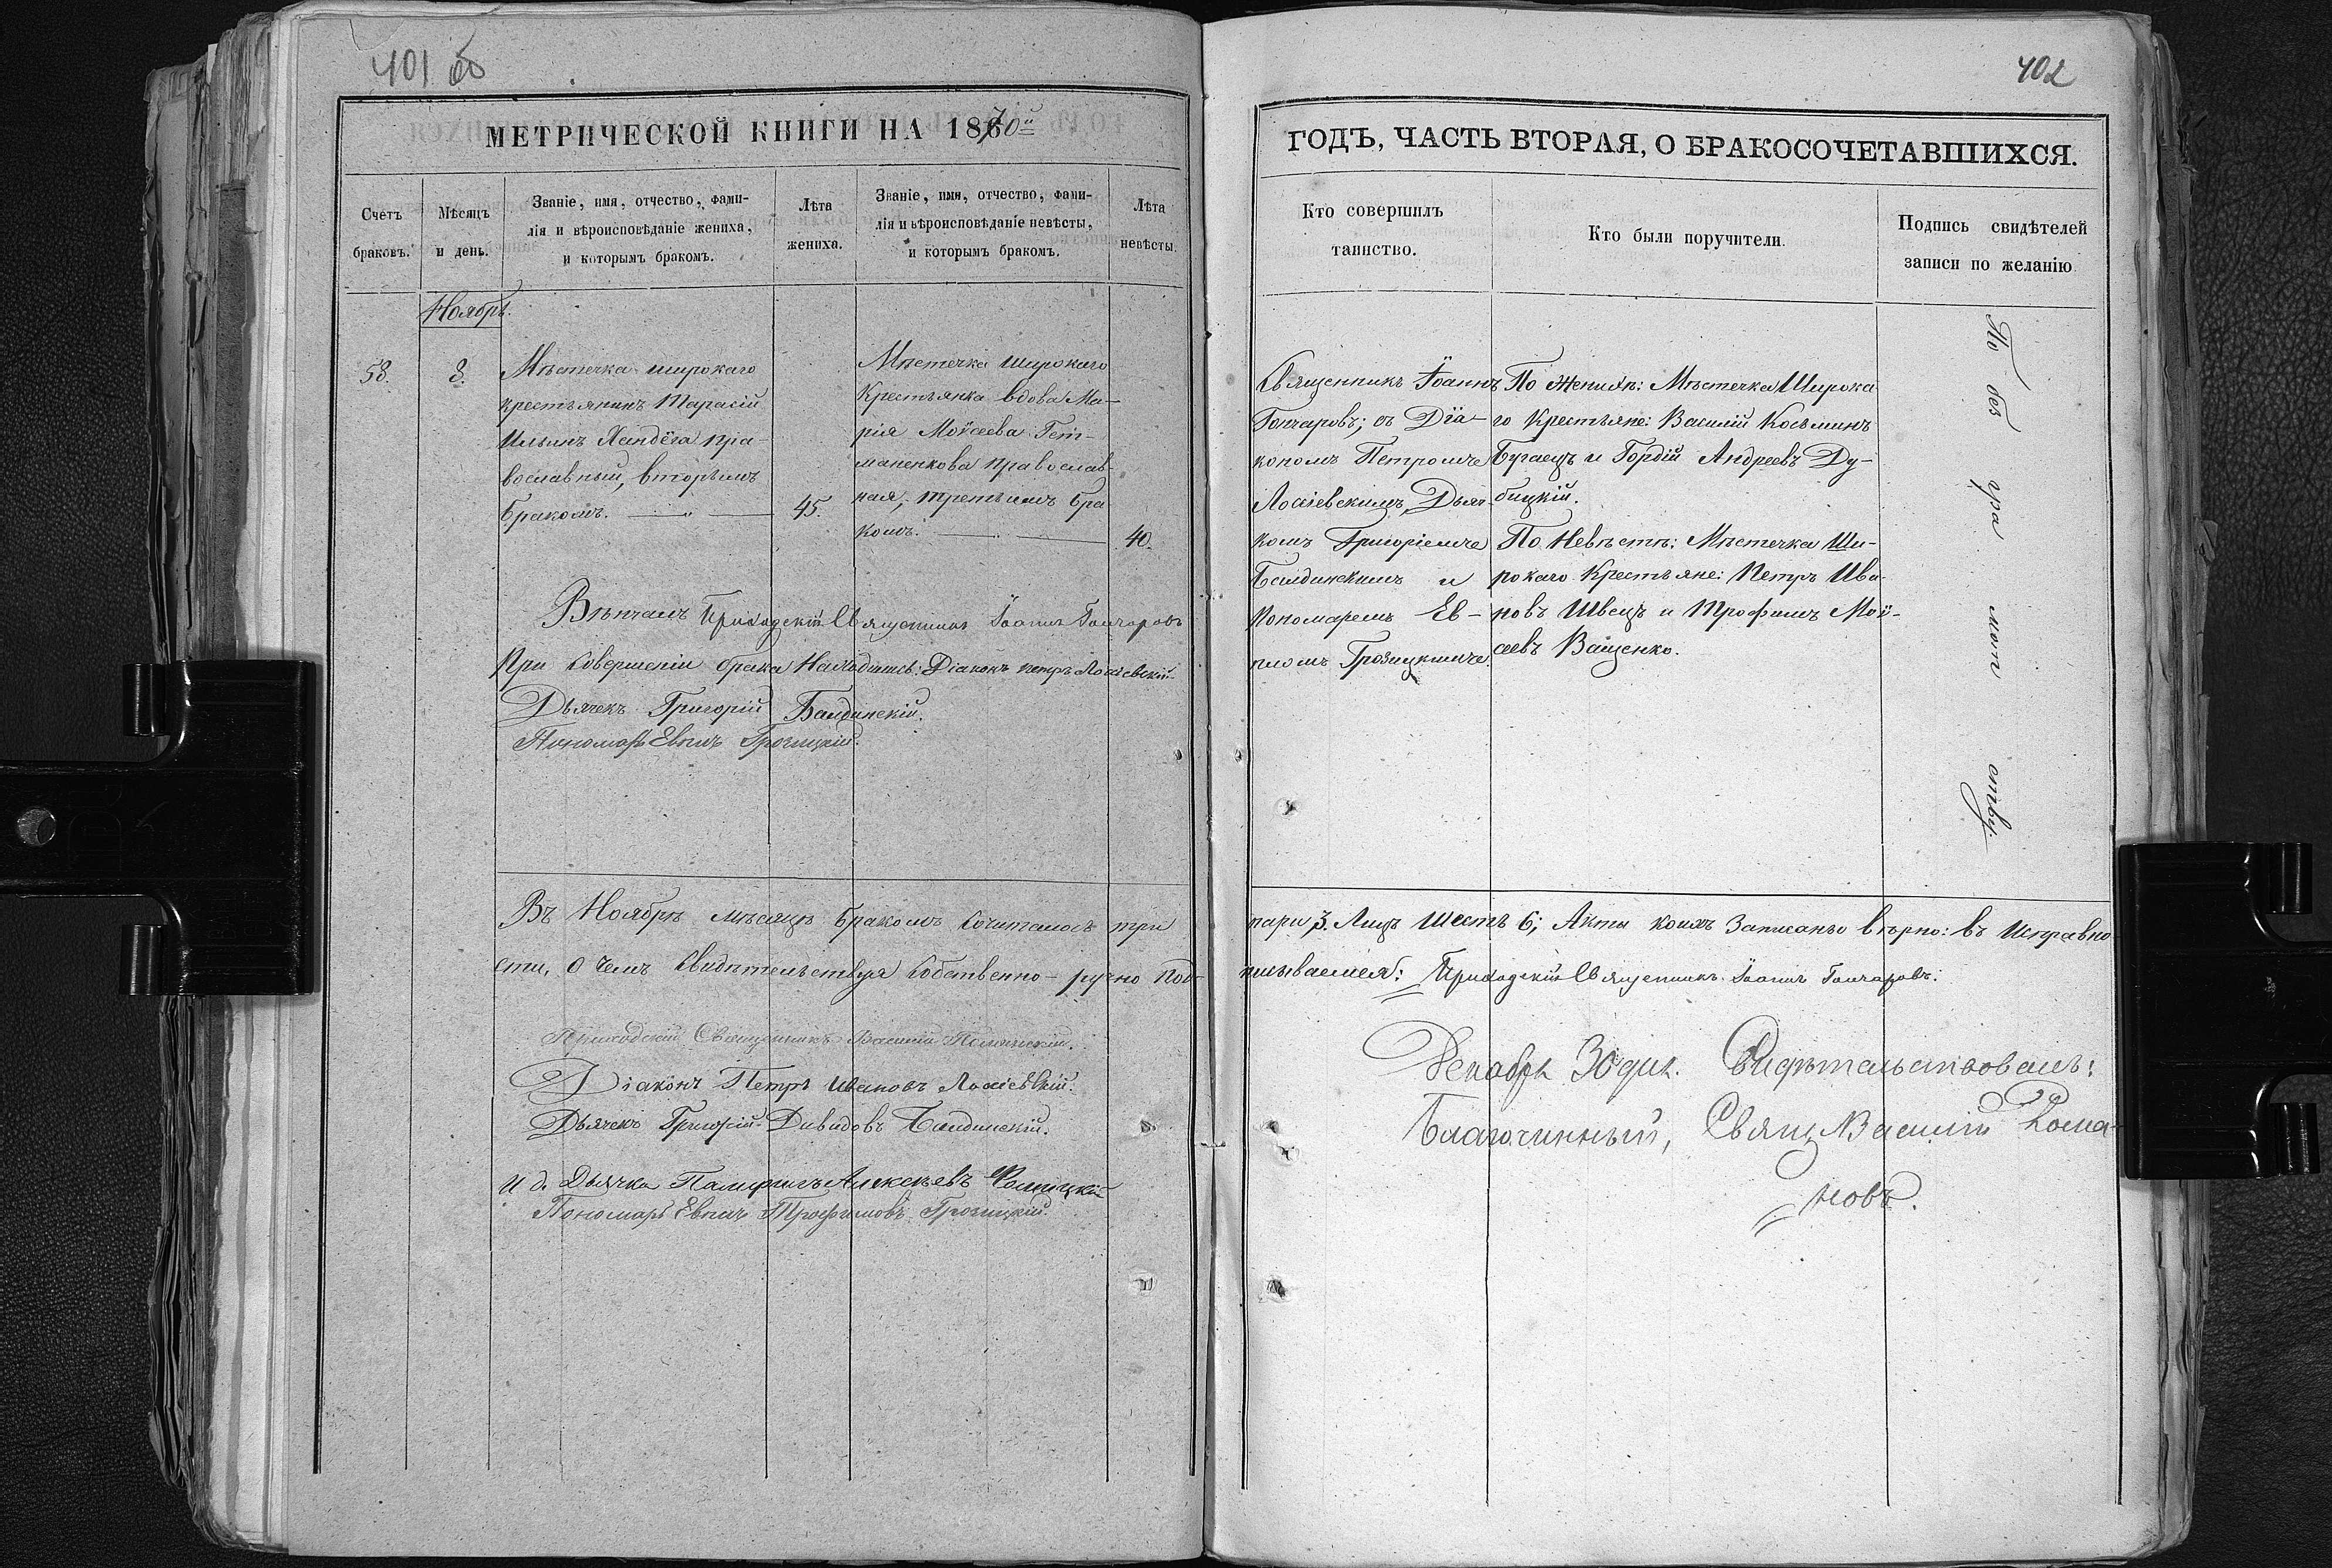 401 об
МЕТРИЧЕСКОЙ КНИГИ НА 1870й
Счетъ
браковъ.
Мѣсяцъ
и день.
Званіе, имя, отчество, фами-
лія и вѣроисповѣданіе жениха,
и которымъ бракомъ.
Лѣта
жениха.
Званіе, имя, отчество, фами-
лія и вѣроисповѣданіе невѣсты,
и которымъ бракомъ.
Лѣта
невѣсты.
Ноябрь.
58.
8.
Мѣстечка широкаго
крестьянинъ Тарасій
Ильинъ Хандёга пра-
вославный, вторымъ
бракомъ.
45.
Мѣстечка широкаго
Крестьянка вдова Ма-
рія Моѵсеева Гет-
маненкова православ-
ная, третьимъ бра
комъ.
40.
Вѣнчалъ Приходскій Священникъ Іоаннъ Гончаровъ
При совершеніи брака Находились: Діаконъ петръ Лосіевскій
Дьячекъ Григорій Балдинскій.
Пономарь Евпмъ Грозицкій.
Въ Ноябрѣ мѣсяцѣ бракомъ сочиталось три
сти, о чемъ свидѣтельствуя собственно-ручно под-
Приходскій Священникъ Василій
Діаконъ Петръ Ивановъ Лосіевскій.
Дьячекъ Григорій Давидовъ Балдинскій.
И д. Дьячка Памфилъ Алексѣевъ
Пономарь Трофимовъ Грозицкій.
402
ГОДЪ, ЧАСТЬ ВТОРАЯ, О БРАКОСОЧЕТАВШИХСЯ.
Кто совершилъ
таинство.
Кто были поручители.
Подпись свидѣтелей
записи по желанію.
Священникъ Іоаннъ
Гончаровъ; съ Діа-
кономъ Петромъ
Лосіевскимъ, Дьяч-
комъ Григоріемъ
Балдинскимъ и
Пономаремъ Ев-
Грозицкимъ.
По Женихѣ: Мѣстечка Широка
го Крестьяне: Василій Косьминъ
Бугаецъ и Гордій Андреевъ Ду-
бицкій.
По Невѣстѣ: Мѣстечка Ши-
рокаго Крестьяне: Петръ Ива-
новъ Швецъ и Трофимъ Моѵ-
сеевъ Ващенко.
По без гра мот ству.
пари 3. Лицъ Шесть 6; Акты коихъ Записаны вѣрно: въ Исправно
писываемся: Приходскій Священникъ Іоаннъ Гончаровъ:
Декабря 30 дня. Свидѣтельствовалъ:
Благочинный, Свящ. Василій Рома-
новъ.